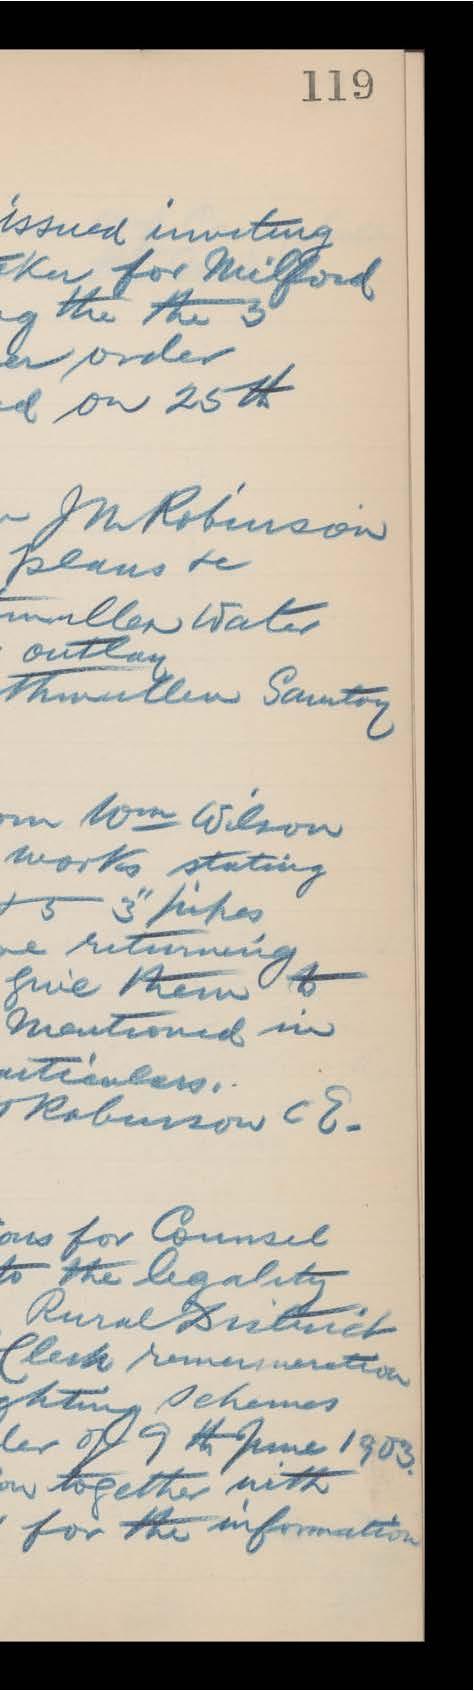 119
issued inviting
for Milford
the the 3
order
on 25th
J M Robinson
plans &c
Water
outlay
thmullen Sanitry
Wm Wilson
works stating
5 3" pipes
returning
give them to
Mentioned in
articulars.
Robinson C E.
ons for Counsel
to the legality
Rural District
Clerk remuneration
ghting Schemes
der of 9th June 1903.
on together with
for the information